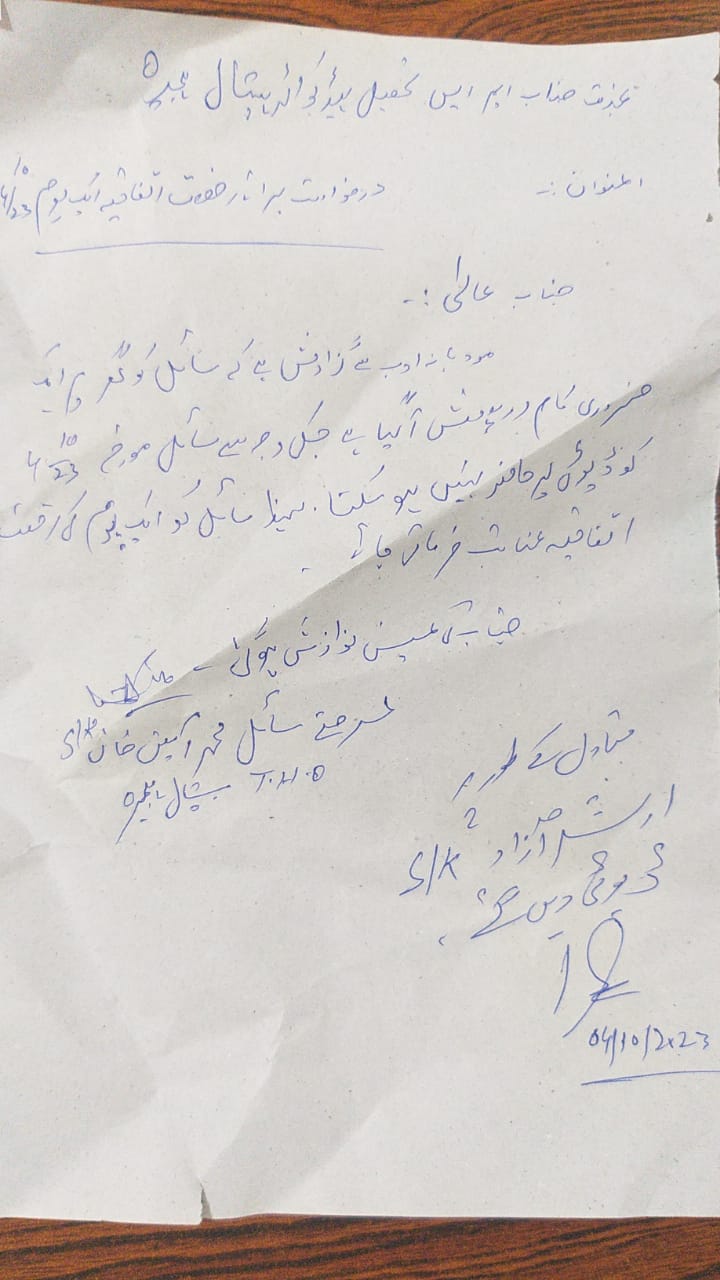 بخدمت جناب ایم ایس تحصیل ہیڈ کوائر ہسپتال ہجیرہ
المنوان :-
درخواست برائے رخصت اتفاقیہ ایک یوم 4/10/23
جناب عالی :-
مودبانہ ادب سے گزارش ہے کہ سائل کو گھر پر ایک
ضروری کام درپیش آ گیا ہے جسکی وجہ سے سائل مورخہ 4/10/23
کو ڈیوٹی پر حاضر نہیں ہو سکتا۔ لہذا سائل کو ایک یوم کی رخصت
اتفاقیہ عنایت فرمائی جائے۔
جناب کی عین نوازش ہو گی۔
عرضے سائل محمد آمین خان S/K
T.H.Q ہسپتال ہجیرہ
متبادل کے طور پر
ارشد آزاد S/K
ڈیوٹی دیں گے۔
04/10/2023